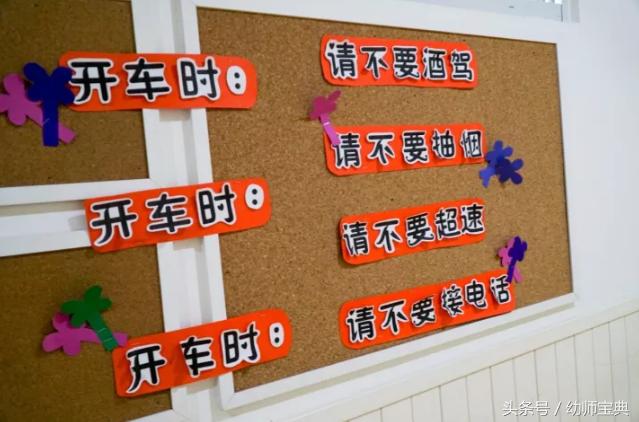 开车时:
请不要酒驾
请不要抽烟
开车时:
请不要超速
开车时:
请不要接电话
头条号/幼师宝典